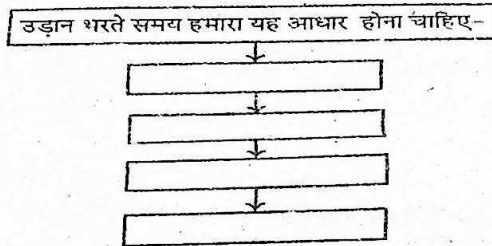 उड़ान भरते समय हमारा यह आधार होना चाहिए-